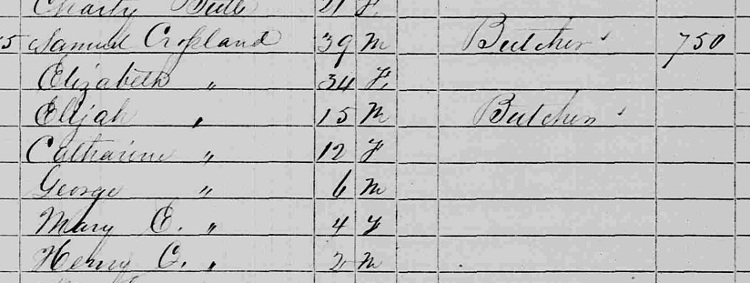 Charly Bell 21 F
5 Samuel Cropland 39 M Butcher 750
Elizabeth " 34 F
Elijah " 15 M Butcher
Catharine " 12 F
George " 6 M
Mary E. " 4 F
Henry C. " 2 M